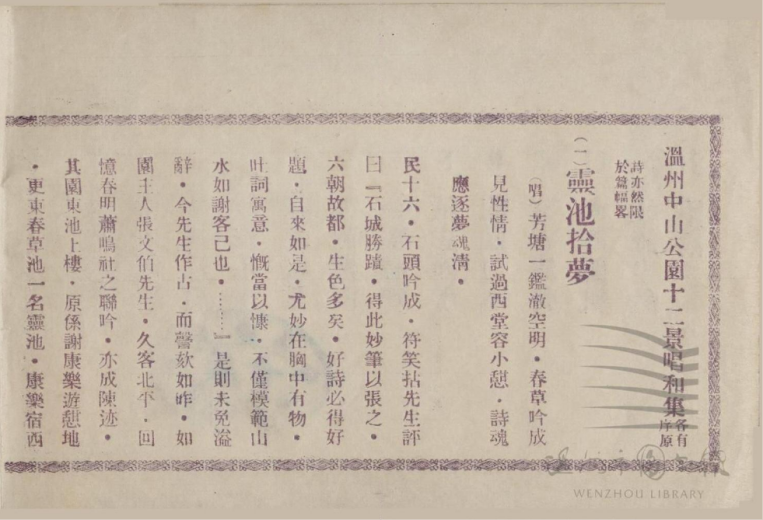 溫州中山公園十二景唱和集 各有原序
詩亦然限於篇幅畧
(一)靈池拾夢
(唱)芳塘一鑑澈空明・春草吟成
見性情・試過西堂容小憇・詩魂
應逐夢魂淸・
民十六・石頭吟成・符笑拈先生評
曰『石城勝蹟・得此妙筆以張之・
六朝故都・生色多矣・好詩必得好
題・自來如是・尤妙在胸中有物・
吐詞寓意・慨當以慷・不僅模範山
水如謝客已也・……』是則未免溢
辭・今先生作古・而謦欬如昨・如
園主人張文伯先生・久客北平・回
憶春明蕭鳴社之聯吟・亦成陳迹・
其園東池上樓・原係謝康樂游憇地
・更東春草池一名靈池・康樂宿西
WENZHOU LIBRARY